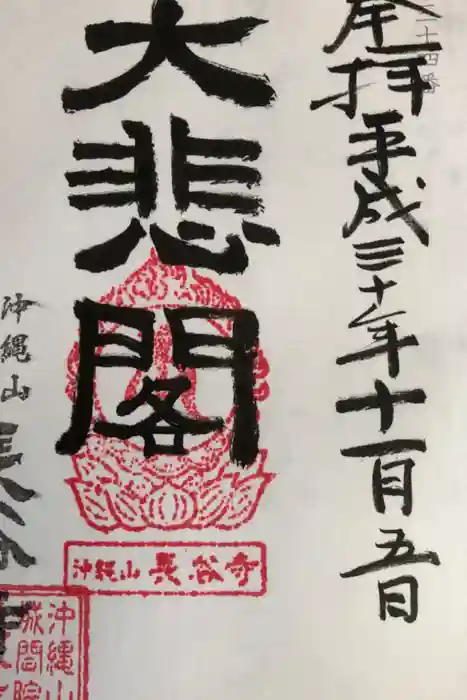 二十四番
奉拝
平成三十年十一月五日
大悲閣
沖縄山 長谷寺
沖縄山
長谷寺
沖縄山